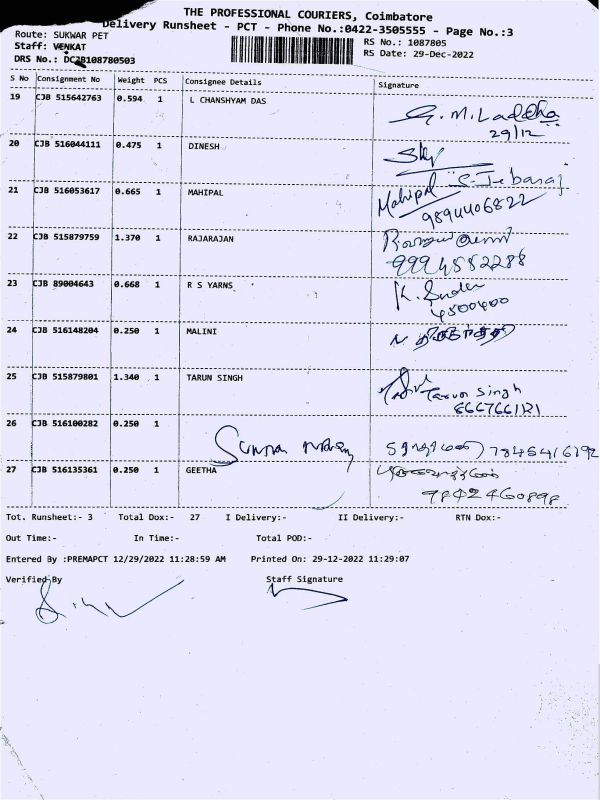 THE PROFESSIONAL COURIERS, Coimbatore
Delivery Runsheet - PCT - Phone No.:0422-3505555 - Page No.:3
Route: SUKWAR PET
RS No.: 1087805
Staff: VENKAT
RS Date: 29-Dec-2022
DRS No.: DC2B108780503
S No Consignment No Weight PCS Consignee Details Signature
19 CJB 515642763 0.594 1 L CHANSHYAM DAS G. M. Laddha
29/12
20 CJB 516044111 0.475 1 DINESH
S. Jebaraj
21 CJB 516053617 0.665 1 MAHIPAL Mahipal
9894406822
22 CJB 515879759 1.370 1 RAJARAJAN
9994552288
23 CJB 89004643 0.668 1 R S YARNS K.
4500400
24 CJB 516148204 0.250 1 MALINI
25 CJB 515879801 1.340 1 TARUN SINGH Tarun Singh
8667661121
26 CJB 516100282 0.250 1
7845416192
27 CJB 516135361 0.250 1 GEETHA
9842460898
Tot. Runsheet:- 3 Total Dox:- 27 I Delivery:- II Delivery:- RTN Dox:-
Out Time:- In Time:- Total POD:-
Entered By :PREMAPCT 12/29/2022 11:28:59 AM Printed On: 29-12-2022 11:29:07
Verified By Staff Signature